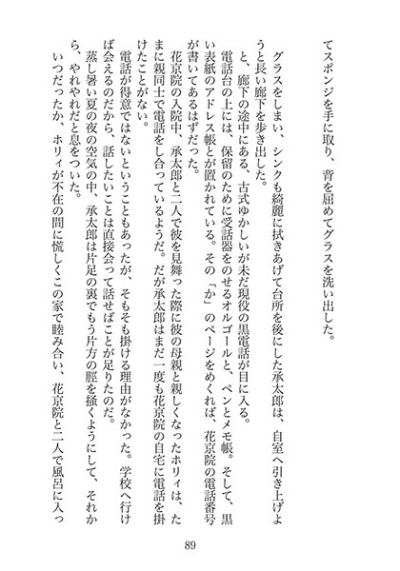 てスポンジを手に取り、背を屈めてグラスを洗い出した。
グラスをしまい、シンクも綺麗に拭きあげて台所を後にした承太郎は、自室へ引き上げよ
うと長い廊下を歩き出した。
と、廊下の途中にある、古式ゆかしいが未だ現役の黒電話が目に入る。
電話台の上には、保留のために受話器をのせるオルゴールと、ペンとメモ帳。そして、黒
い表紙のアドレス帳とが置かれている。その「か」のページをめくれば、花京院の電話番号
が書いてあるはずだった。
花京院の入院中、承太郎と二人で彼を見舞った際に彼の母親と親しくなったホリィは、た
まに親同士で電話をし合っているようだ。だが承太郎はまだ一度も花京院の自宅に電話を掛
けたことがない。
電話が得意ではないということもあったが、そもそも掛ける理由がなかった。学校へ行け
ば会えるのだから、話したいことは直接会って話せばことが足りたのだ。
蒸し暑い夏の夜の空気の中、承太郎は片足の裏でもう片方の脛を掻くようにして、それか
ら、やれやれだと息をついた。
いつだったか、ホリィが不在の間に慌しくこの家で睦み合い、花京院と二人で風呂に入っ
89